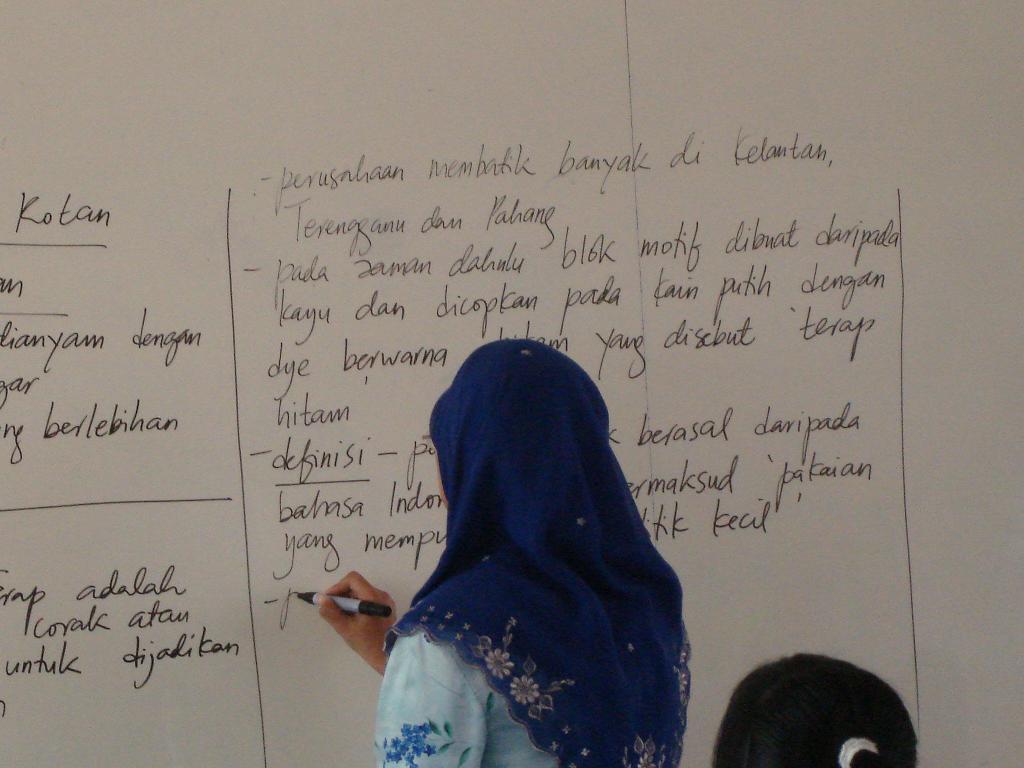 Kotan
an
dianyam dengan
gar
ng berlebihan
rap adalah
corak atau
untuk dijadikan
n
- perusahaan membatik banyak di Kelantan,
Terengganu dan Pahang
- pada zaman dahulu blok motif dibuat daripada
kayu dan dicopkan pada kain putih dengan
dye berwarna hitam yang disebut 'terap
hitam'
- definisi - pe k berasal daripada
bahasa Indon ermaksud 'pakaian
yang mempu titik kecil'
- p